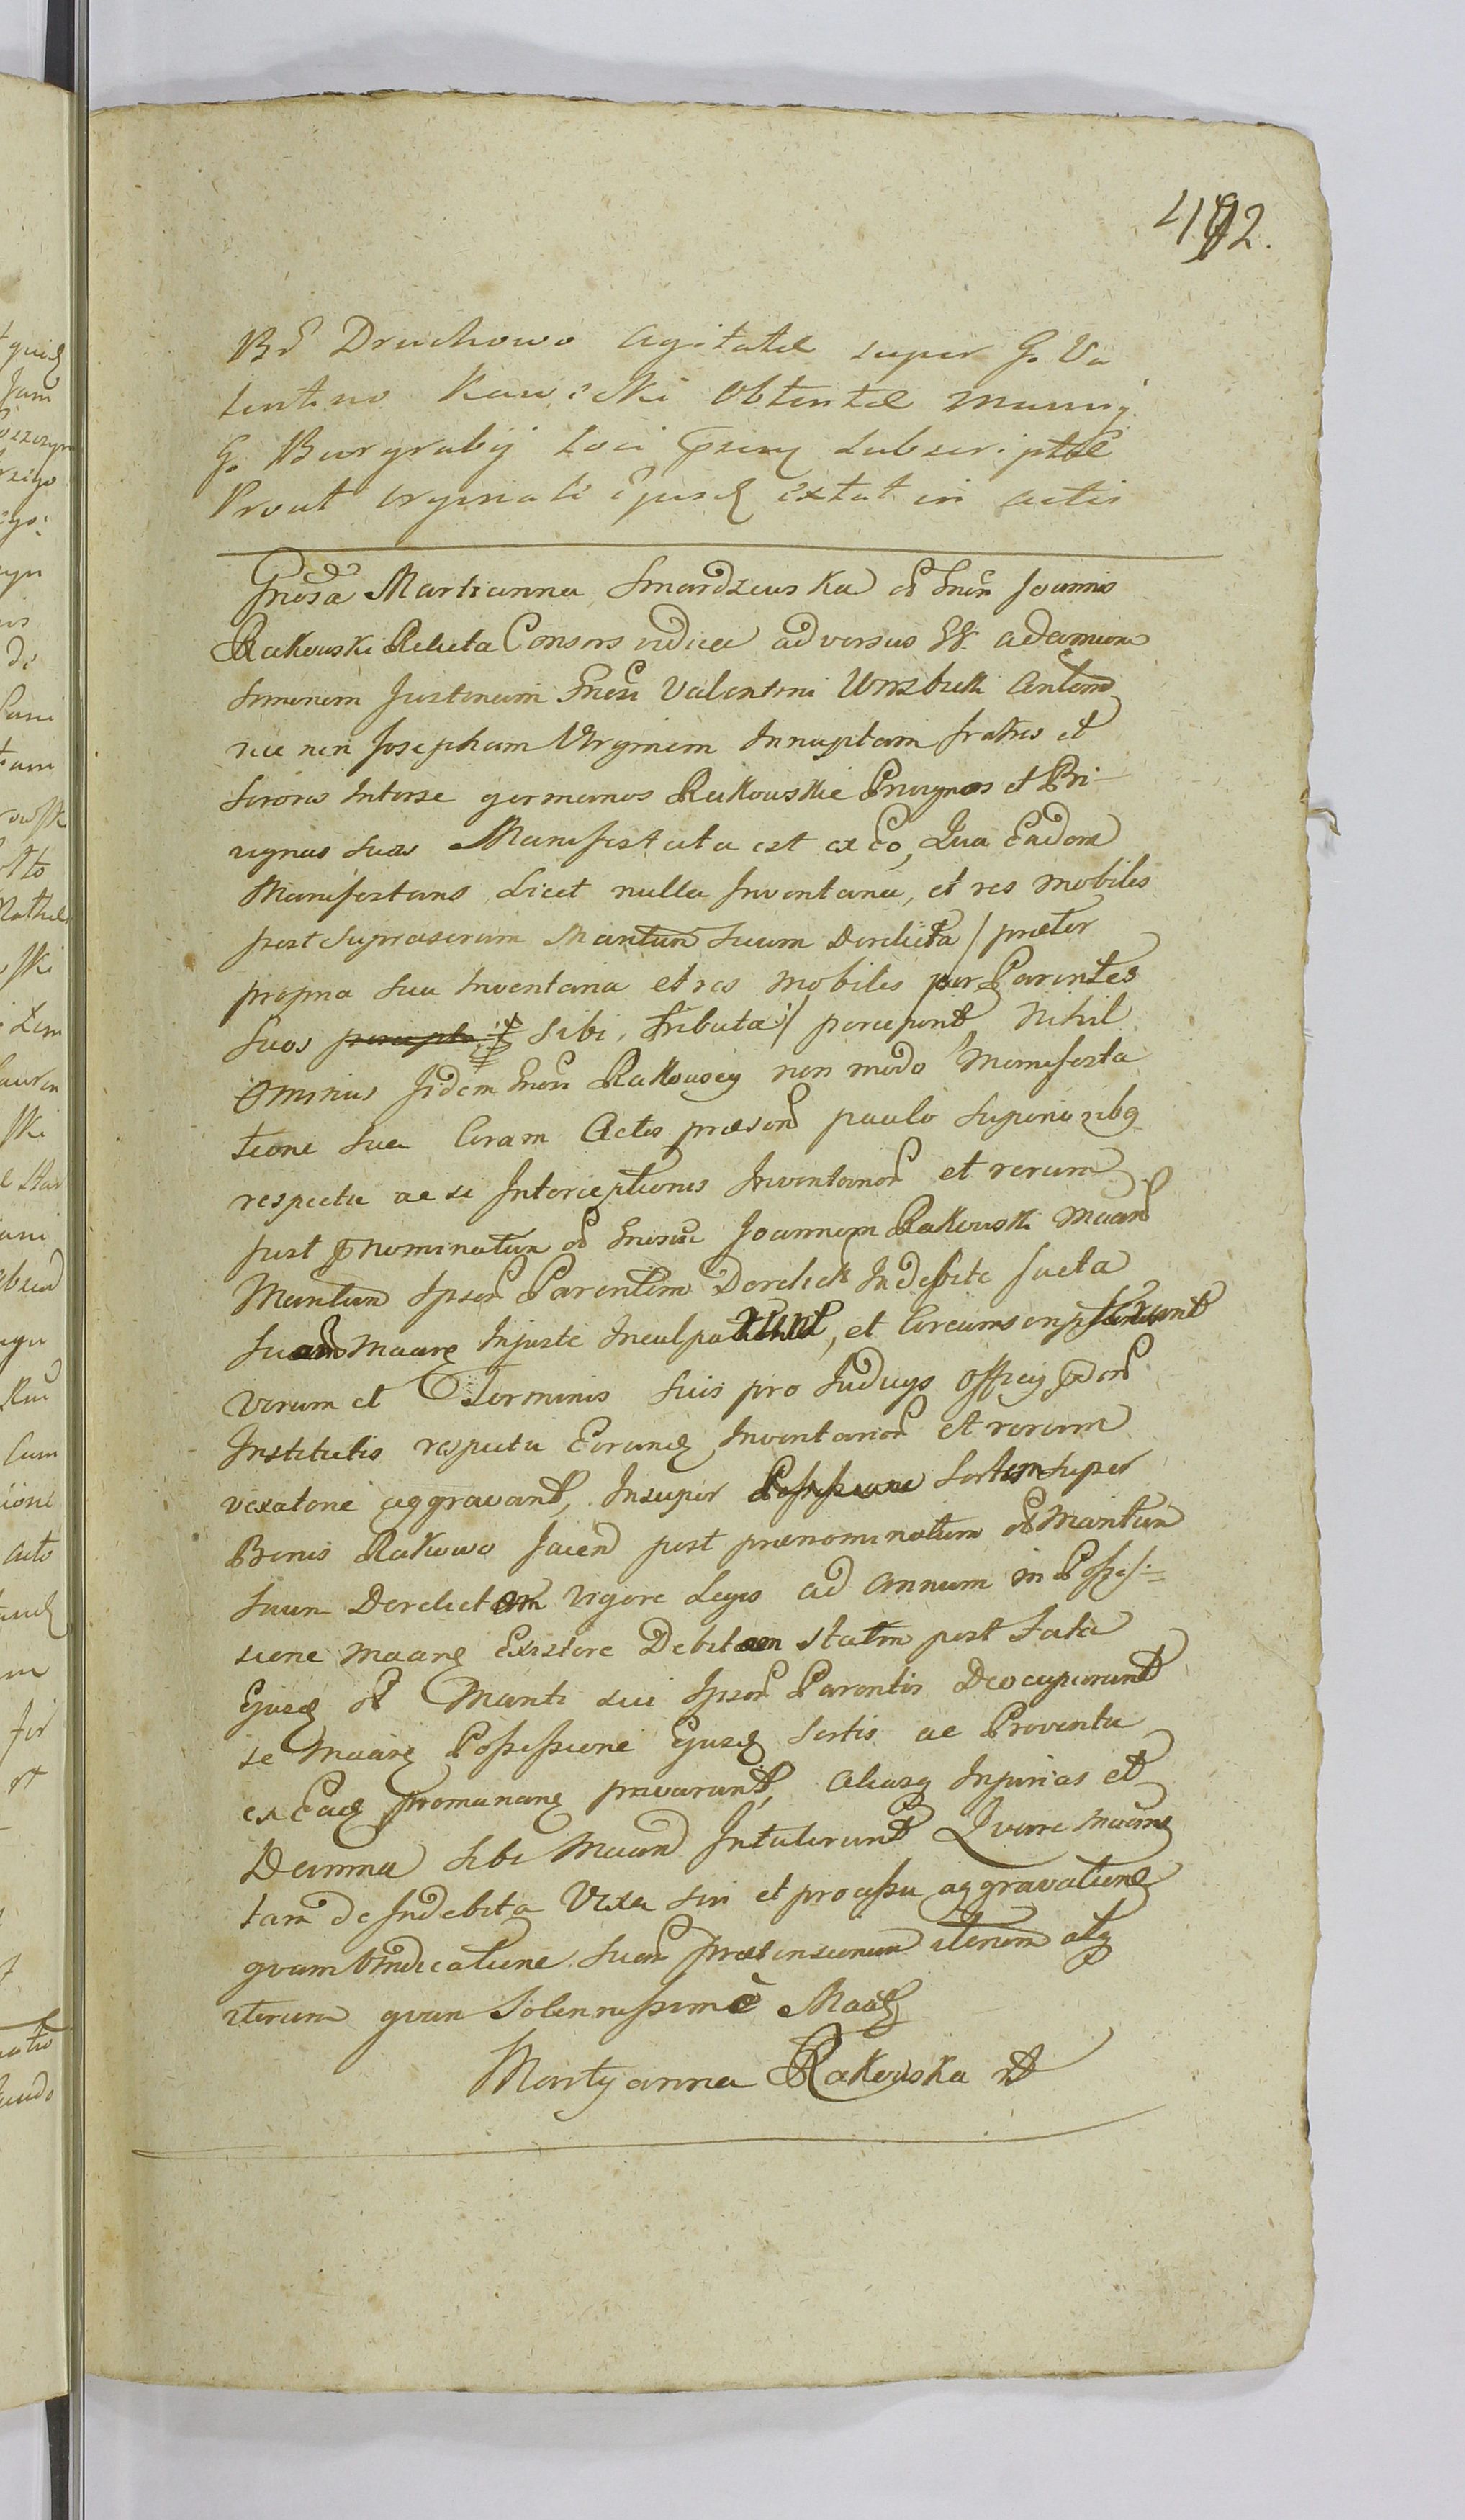 492.
Bs Druchowo agitatæ super G. Va
lentino Kawiecki obtentæ manuq
G. Burgrabij Loci subscriptæ
Prout orginali Ejusd extat in actis
Gnosa Martianna Smardzewska olim Gnsi Joannis
Rakowski Relicta Consors vidua adversus GG. adamum
Simonem Justinum Gnosi Valentini Wierzbicki Consortem
nec non Josepham Virginem Innuptam fratres et
Sorores Interse germanos Rakowskie Privignos et Pri-
vignas suas Manifestata est ex Eo, Qua Eadem
Manifestans Licet nulla Inventaria, et res mobiles
post Suprascrum Maritum Suum Derelicta / præter
propria sua Inventaria et res mobiles per Parentes
Suos sibi tributa / perceperit Nihil
ominus Iidem Gnosi Rakowscy non modo Manifesta
tione sua Coram Actis præsen paulo superioribq
respectu ac si Interceptionis Inventarior et rerum
post prnominatum ol Gnosum Joannem Rakowski Maan
Maritum Ipsor Parentem Derelict Indebite facta
suam Maane Injuste Inculparunt, et Circumscripserunt
Verum et Terminis suis pro Judicys Officy
Institutis respectu Eorund Inventarior et rerum
vexatione aggravant, Insuper Sortem super
Bonis Rakowo Jacen post prænominatum ol Maritum
Suum Derelictam vigore Legis ad annum in Posses=
sione Maane Existere Debitam statim post Fata
Ejusd ol Mariti sui Ipsor Parentis Deocuparunt
se Maane Possessione Ejusd Sortis ac Proventu
ex Ead promanane privarunt, aliasq Injurias et
Damna sibi Maan Intulerunt Quare Maane
tam de Indebita Vexa sui et processu aggravatione
quam Vindicatione suar prætensionum iterum atq
iterum quam Solennissimè Maaes
Martyanna Rakowska